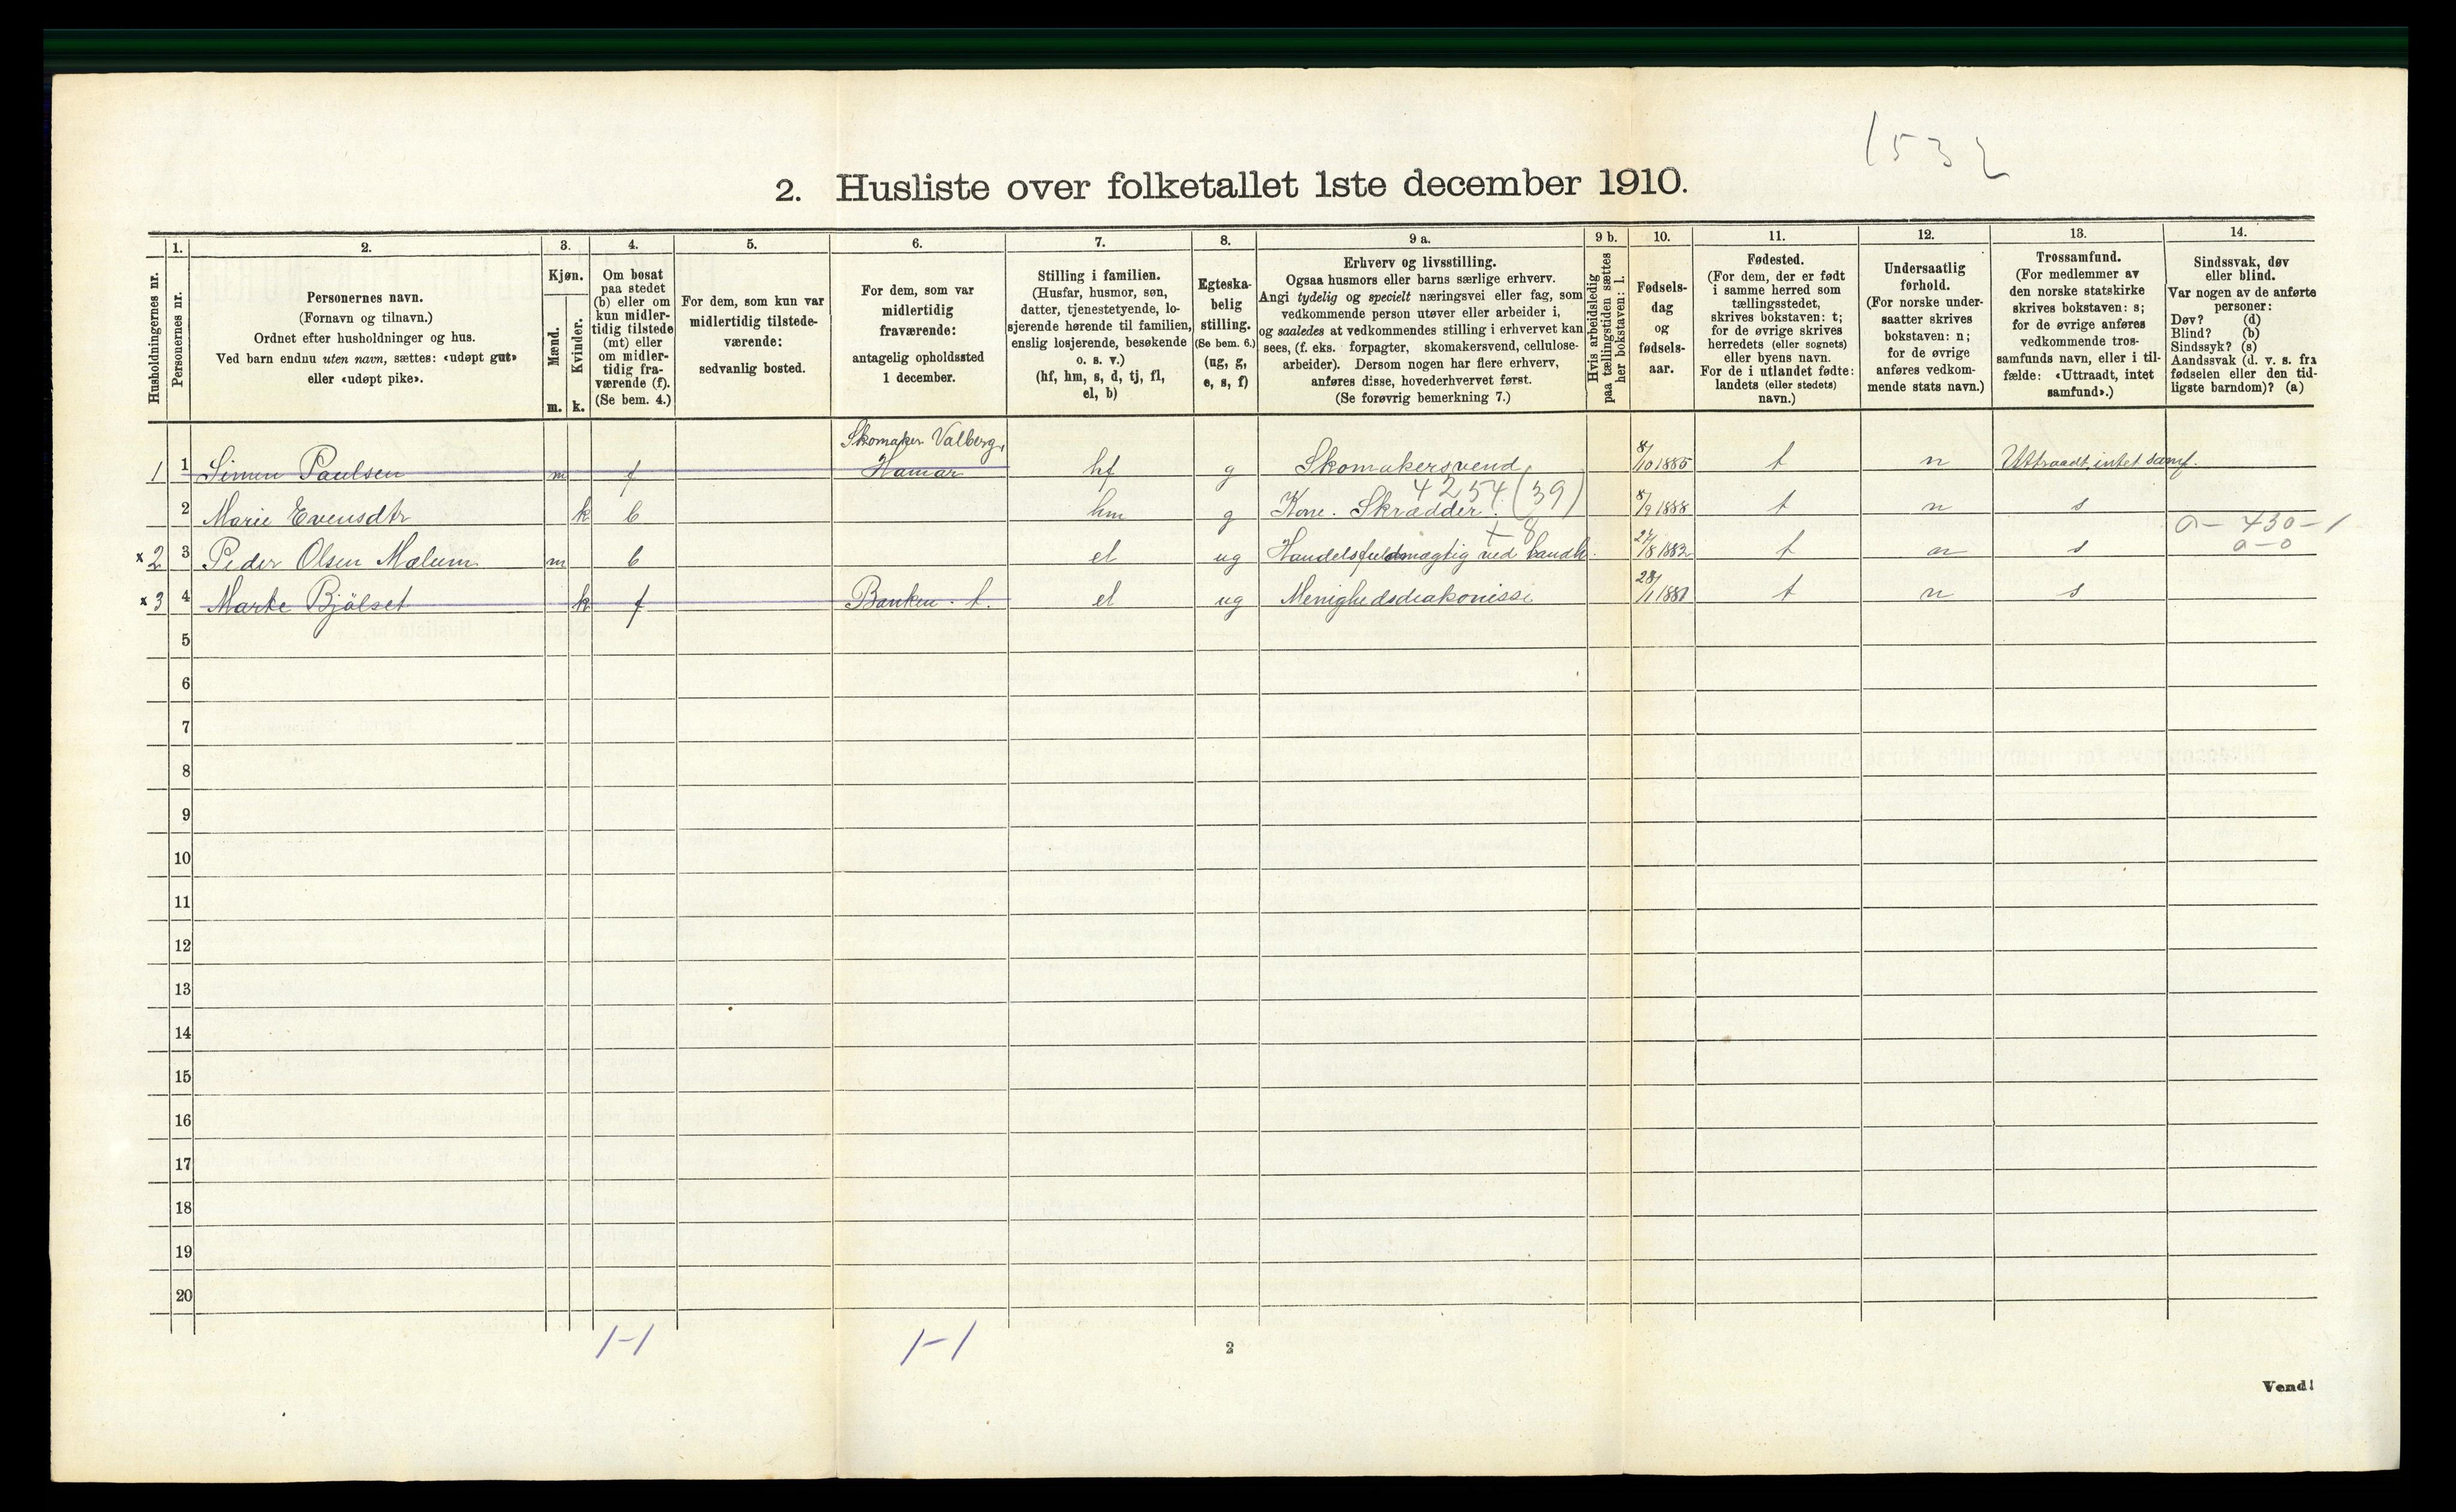 1532
2. Husliste over folketallet 1ste december 1910.
Husholdningernes nr.
1.
Personernes nr.
2.
Personernes navn.
(Fornavn og tilnavn.)
Ordnet efter husholdninger og hus.
Ved barn endnu uten navn, sættes: «udøpt gut»
eller «udøpt pike».
3.
Kjøn.
Mænd.
Kvinder.
m. k.
4.
Om bosat
paa stedet
(b) eller om
kun midler-
tidig tilstede
(mt) eller
om midler-
tidig fra-
værende (f).
(Se bem. 4.)
5.
For dem, som kun var
midlertidig tilstede-
værende:
sedvanlig bosted.
6.
For dem, som var
midlertidig
fraværende:
antagelig opholdssted
1 december.
7.
Stilling i familien.
(Husfar, husmor, søn,
datter, tjenestetyende, lo-
sjerende hørende til familien,
enslig losjerende, besøkende
o. s. v.)
(hf, hm, s, d, tj, fl,
el, b)
8.
Egteska-
belig
stilling.
(Se bem. 6.)
(ug, g,
e, s, f)
9 a.
Erhverv og livsstilling.
Ogsaa husmors eller barns særlige erhverv.
Angi tydelig og specielt næringsvei eller fag, som
vedkommende person utøver eller arbeider i,
og saaledes at vedkommendes stilling i erhvervet kan
sees, (f. eks. forpagter, skomakersvend, cellulose-
arbeider). Dersom nogen har flere erhverv,
anføres disse, hovederhvervet først.
(Se forøvrig bemerkning 7.)
9 b.
Hvis arbeidsledig
paa tællingstiden sættes
her bokstaven: l.
10.
Fødsels-
dag
og
fødsels-
aar.
11.
Fødested.
(For dem, der er født
i samme herred som
tællingsstedet,
skrives bokstaven: t;
for de øvrige skrives
herredets (eller sognets)
eller byens navn.
For de i utlandet fødte:
landets (eller stedets)
navn.)
12.
Undersaatlig
forhold.
(For norske under-
saatter skrives
bokstaven: n;
for de øvrige
anføres vedkom-
mende stats navn.)
13.
Trossamfund.
(For medlemmer av
den norske statskirke
skrives bokstaven: s;
for de øvrige anføres
vedkommende tros-
samfunds navn, eller i til-
fælde: «Uttraadt, intet
samfund».)
14.
Sindssvak, døv
eller blind.
Var nogen av de anførte
personer:
Døv? (d)
Blind? (b)
Sindssyk? (s)
Aandssvak (d. v. s. fra
fødselen eller den tid-
ligste barndom)? (a)
Skomaker Valberg,
1 1 Simen Paulsen m f Hamar hf g Skomakersvend, 8/10 1885 t n Uttraadt, intet samf.
4254 (39)
2 Marie Evensdtr k b hm g Kone. Skrædder. 8/9 1888 t n s
+8 0 - 430 - 1
x2 3 Peder Olsen Mælum m b el ug Handelsfuldmægtig ved landh. /8 1882 t n s 0-0
x3 4 Marte Bjølset k f Banken. t. el ug Menighedsdiakonisse 28/1 1881 t n s
5
6
7
8
9
10
11
12
13
14
15
16
17
18
19
20
1-1 1-1
2
Vend!